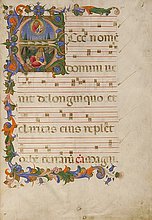 cce nome
Domini ve
nit de longinquo et
claritas eius replet
orbe terrarum